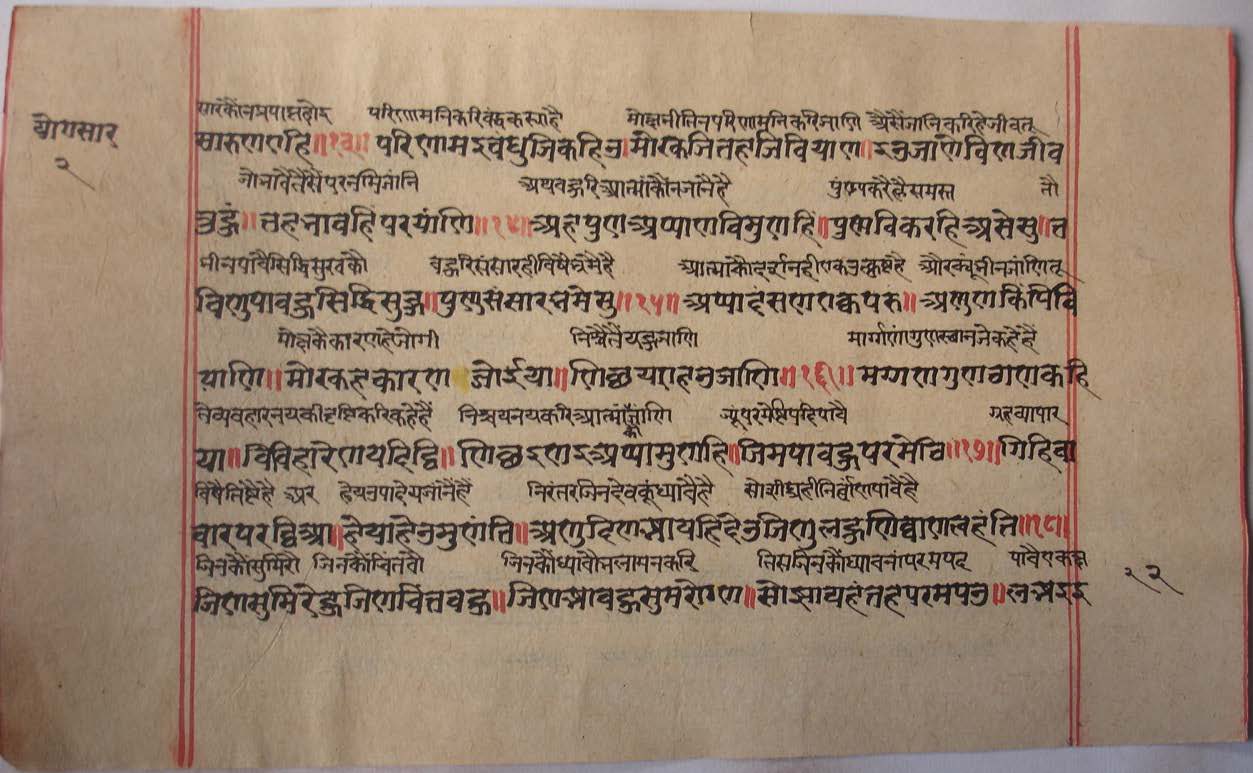 योगसार
२
सारकौनप्रपामहोइ परिणामनिकरिबंद्धकह्याहै मोक्षनीतिनपरिणामनिकरिजाणि असैंजानिकरिहेजीवतू
सारुणणहि॥१३॥ परिणामइबंधुजिकहिउ॥मोरकजितहजिवियाण॥इउजाणेविणजीव
जोभावैतैसैपरनमिजांनि अथवहुरिआत्मांकौंनजानैहै पुंण्यकरैहैसमस्त तौ
तुहुं॥तहभावहिपरयांणि॥१४॥अहपुणअप्पाणविमुणहिं॥पुणविकरहिअसेसु॥त
भीनपांवैसिद्धिसुरवकौ बहुरिसंसारहीविषैभ्रमेहै आत्मांकौदर्शनहीएकउत्कृष्टहै औरक्यूंभीनजांणितू
विणुपावहुसिद्धिसुहु॥पुणुसंसारभमेसु॥१५॥अप्पादंसणएक्कपरु॥अणुणकिंपिवि
मोक्षकैकारणहेजोगी निश्चैतैंयहुजाणि मार्गणांगुणस्थानजेकहेहैं
याणि॥मोरकहकारण जोईया॥णिछयएहउजाणि॥१६॥मग्गणगुणठाणकहि
तेव्यवहारनयकीदृष्टिकरिकहेहैं निश्चयनयकरिआत्मांजाणि ज्यूंपरमेष्टिपदिपावै गृहव्यापार
या॥विविहारेणयहिद्दि॥णिछइणइअप्पामुणहि॥जिमपावहुपरमेठि॥१७॥गिहिवा
विषैतिष्टेहै अर हेयउपादेयजांनैहैं निरंतरजिनदेवकूंध्यावैहै सोशीघ्रहीनिर्वांणपावैहै
वारपरद्विआ॥हेयाहेउमुणंति॥अणुदिणझायहिंदेउजिणुलहुणिव्वाणलहंति॥१८॥
जिनकौंसुमिरौ जिनकौंचिंतवौ जिनकौंध्यावौभलामनकरि तिसजिनकौंध्यावतांपरमपद पावैएकक्ष
जिणसुमिरेहुजिणचिंतवहु॥जिणझावहुसुमरोणण॥सोझायहंतहपरमपउ॥लभ्भइइ
२२